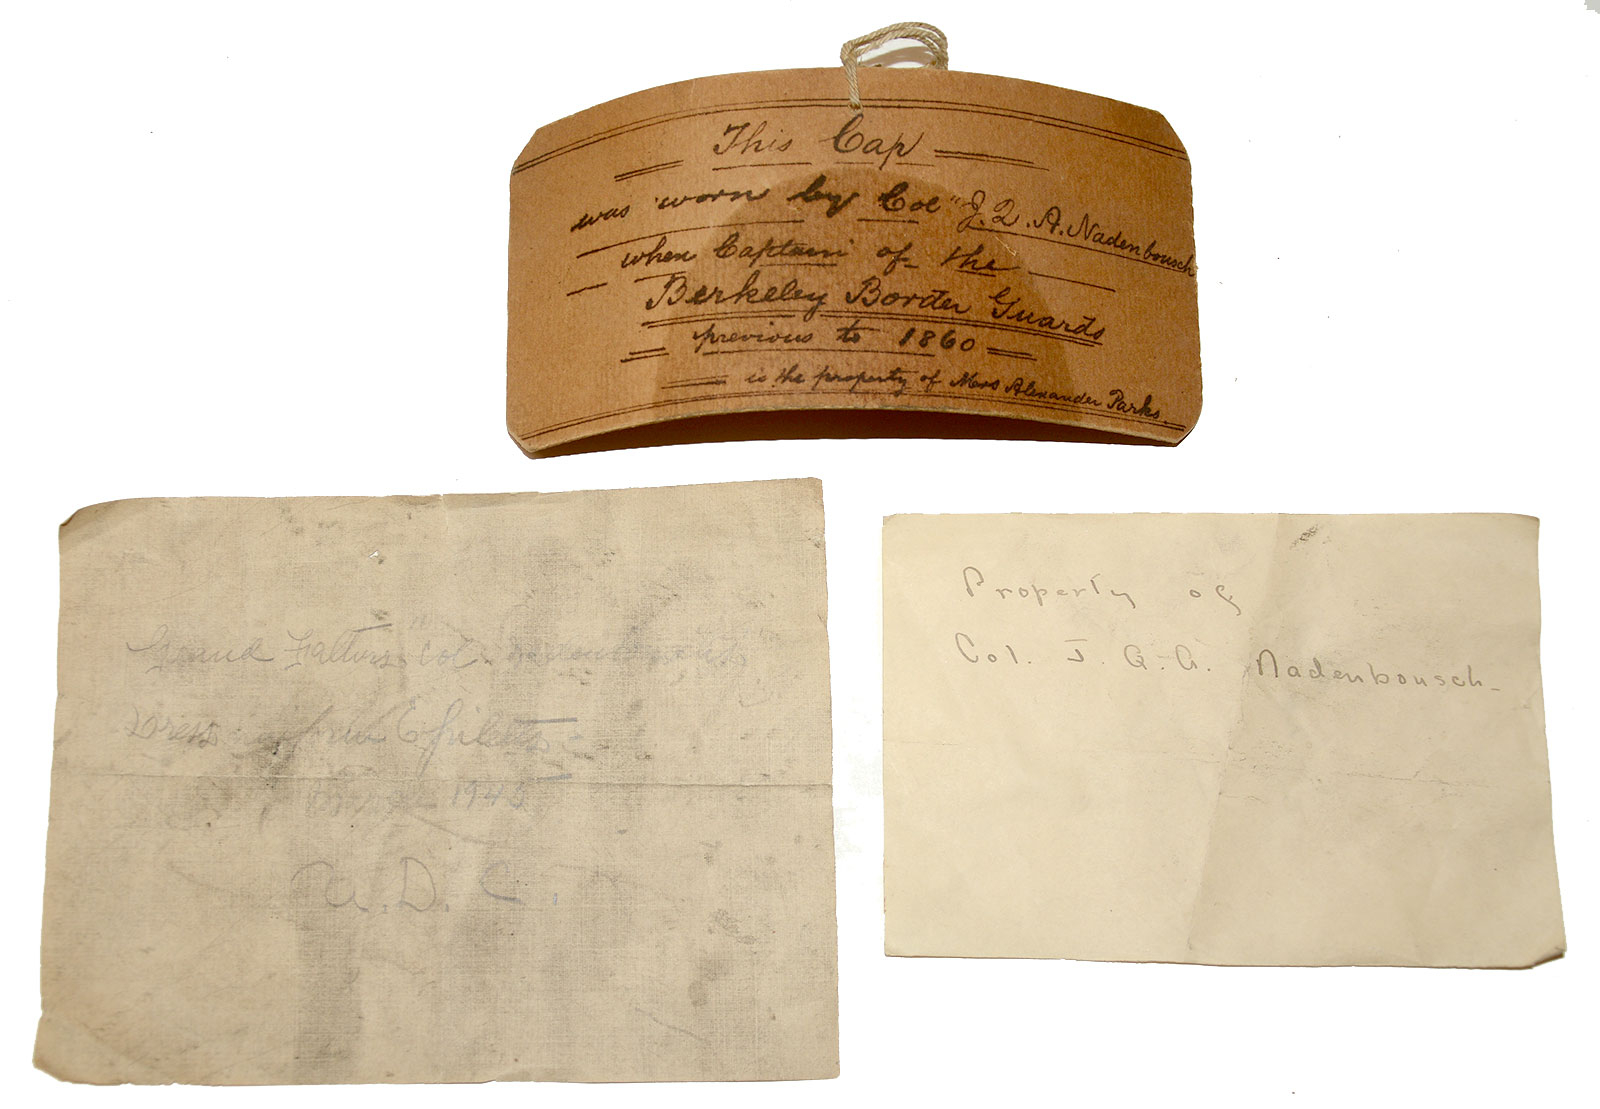 This Cap
was worn by Col J. Q. A. Nadenbousch
when Captain of the
Berkeley Border Guards
previous to 1860
is the property of Mrs Alexander Parks.
Grand Fathers Col.
Dress
1945
A. D. C.
Property of
Col. J. Q. A. Nadenbousch-